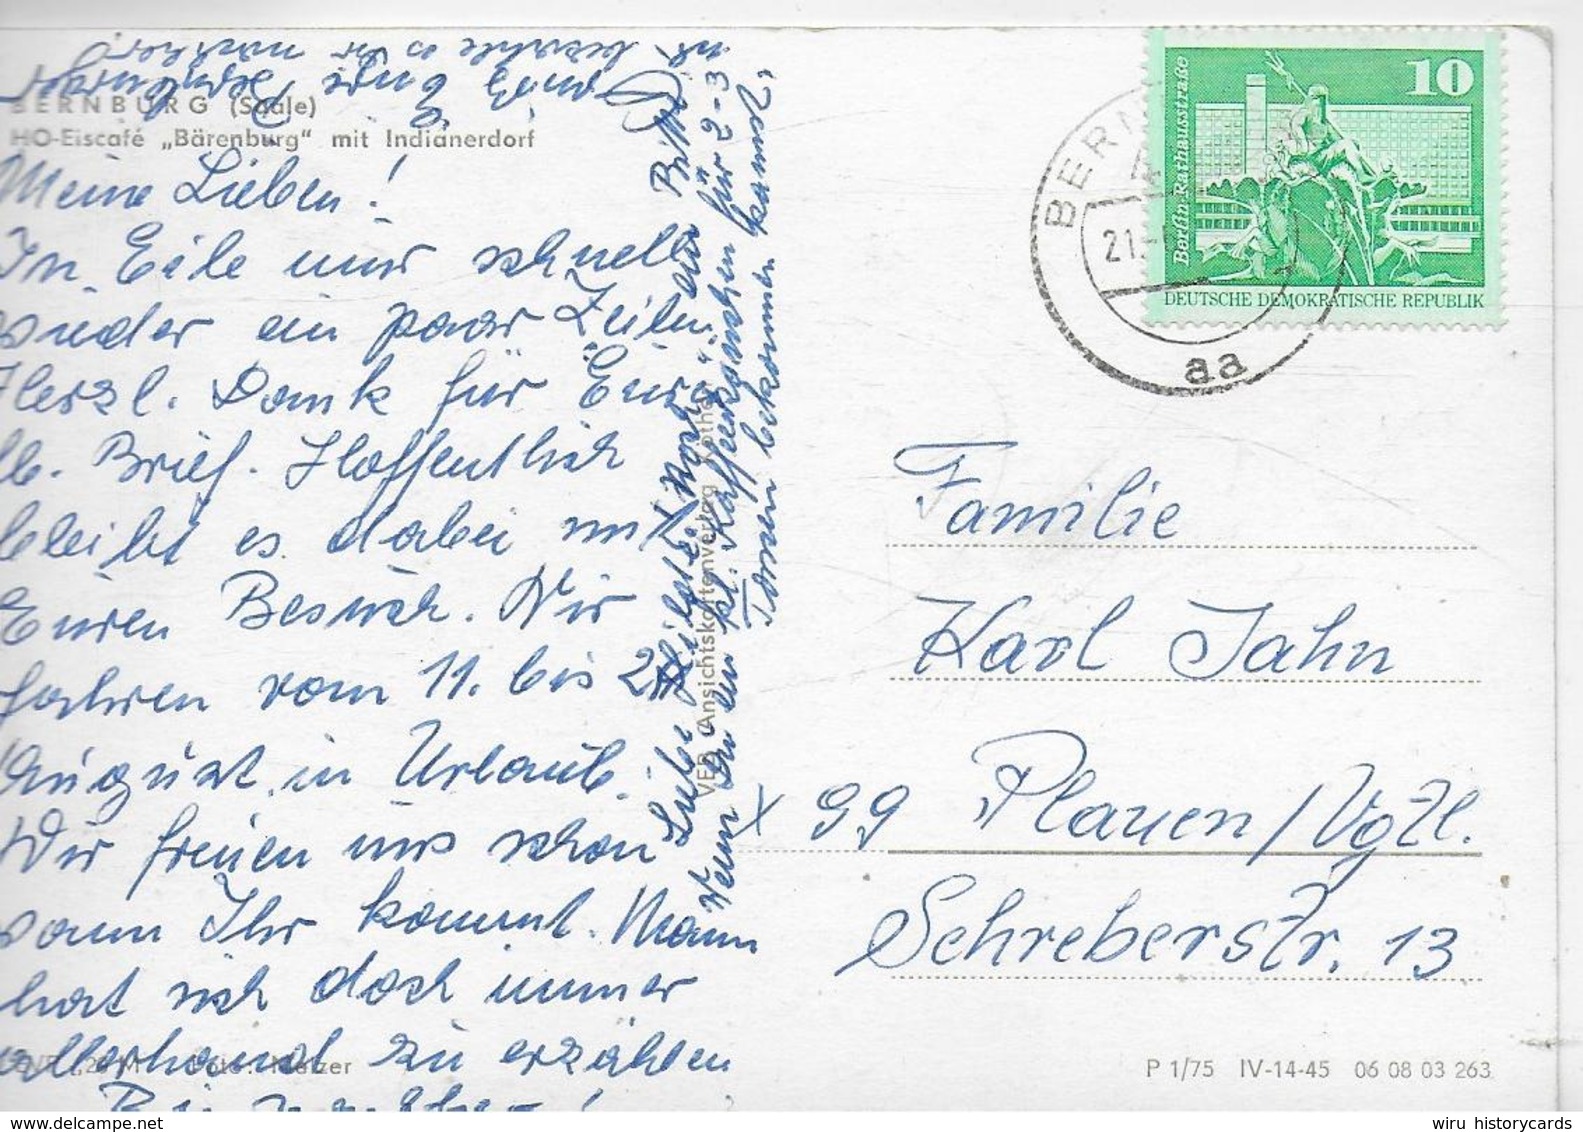 BERNBURG (Saale)
HO-Eiscafé „Bärenburg" mit Indianerdorf
Meine Lieben!
In Eile nur schnell
wieder ein paar Zeilen.
Herzl. Dank für Eure
lb. Brief. Hoffentlich
bleibt es dabei mit
Euren Besuch. Wir
fahren vom 11. bis
August in Urlaub.
Wir freuen uns schon
wann Ihr kommt. Mann
hat sich doch immer
allerhand zu erzählen
Liebe Hilde! Noch eine Bitte
Wenn Du ein kl. Kaffeekännchen für 2-3
Tassen bekommen kannst,
Eure Bernburger
VEB Ansichtskartenverlag
10
Berlin-Rathausstraße
DEUTSCHE DEMOKRATISCHE REPUBLIK
BERN
21.
aa
Familie
Karl Jahn
x 99 Plauen/Vgtl.
Schreberstr. 13
P 1/75 IV-14-45 06 08 03 263
wiru historycards